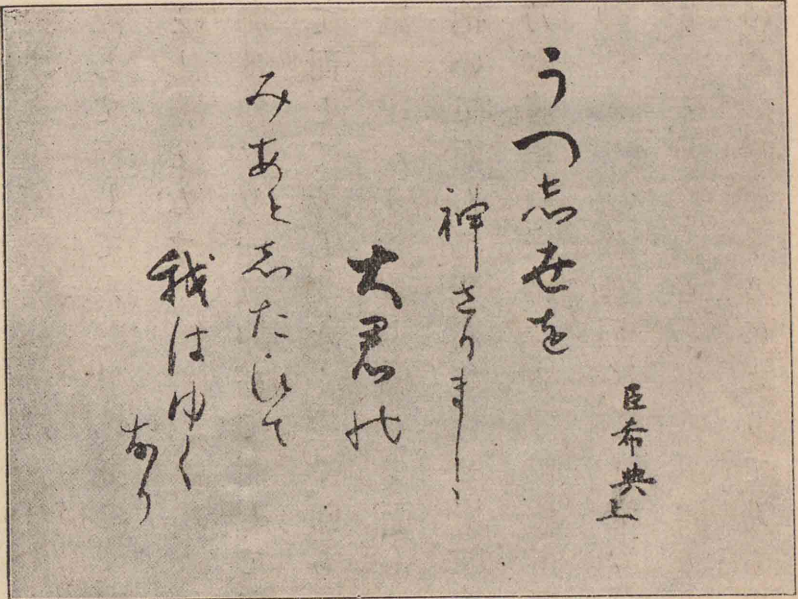 臣希典上
うつ志世を
神さりましゝ
大君の
みあと志たひて
我はゆく
なり